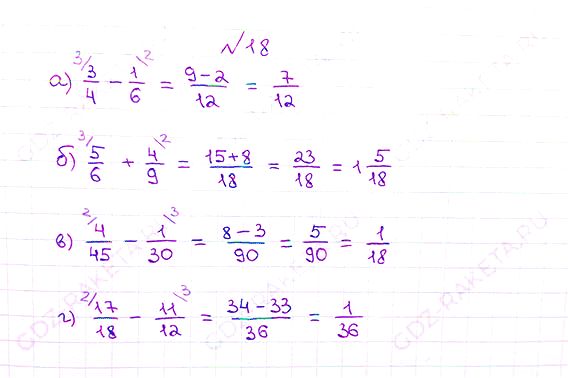 №18
а) ³/ 3/4 − 1/6 \2 = (9−2)/12 = 7/12
б) ³/ 5/6 + 4/9 \2 = (15+8)/18 = 23/18 = 1 5/18
в) ²/ 4/45 − 1/30 \3 = (8−3)/90 = 5/90 = 1/18
г) ²/ 17/18 − 11/12 \3 = (34−33)/36 = 1/36
GDZ-RAKETA.RU
GDZ-RAKETA.RU